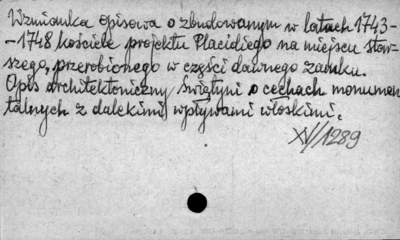 Wzmianka opisowa o zbudowanym w latach 1743-
-1748 kościele projektu Placidiego na miejscu star-
szego, przerobionego w części dawnego zamku.
Opis architektoniczny świątyni o cechach monumen
talnych z dalekimi wpływami włoskimi.
XV/1289